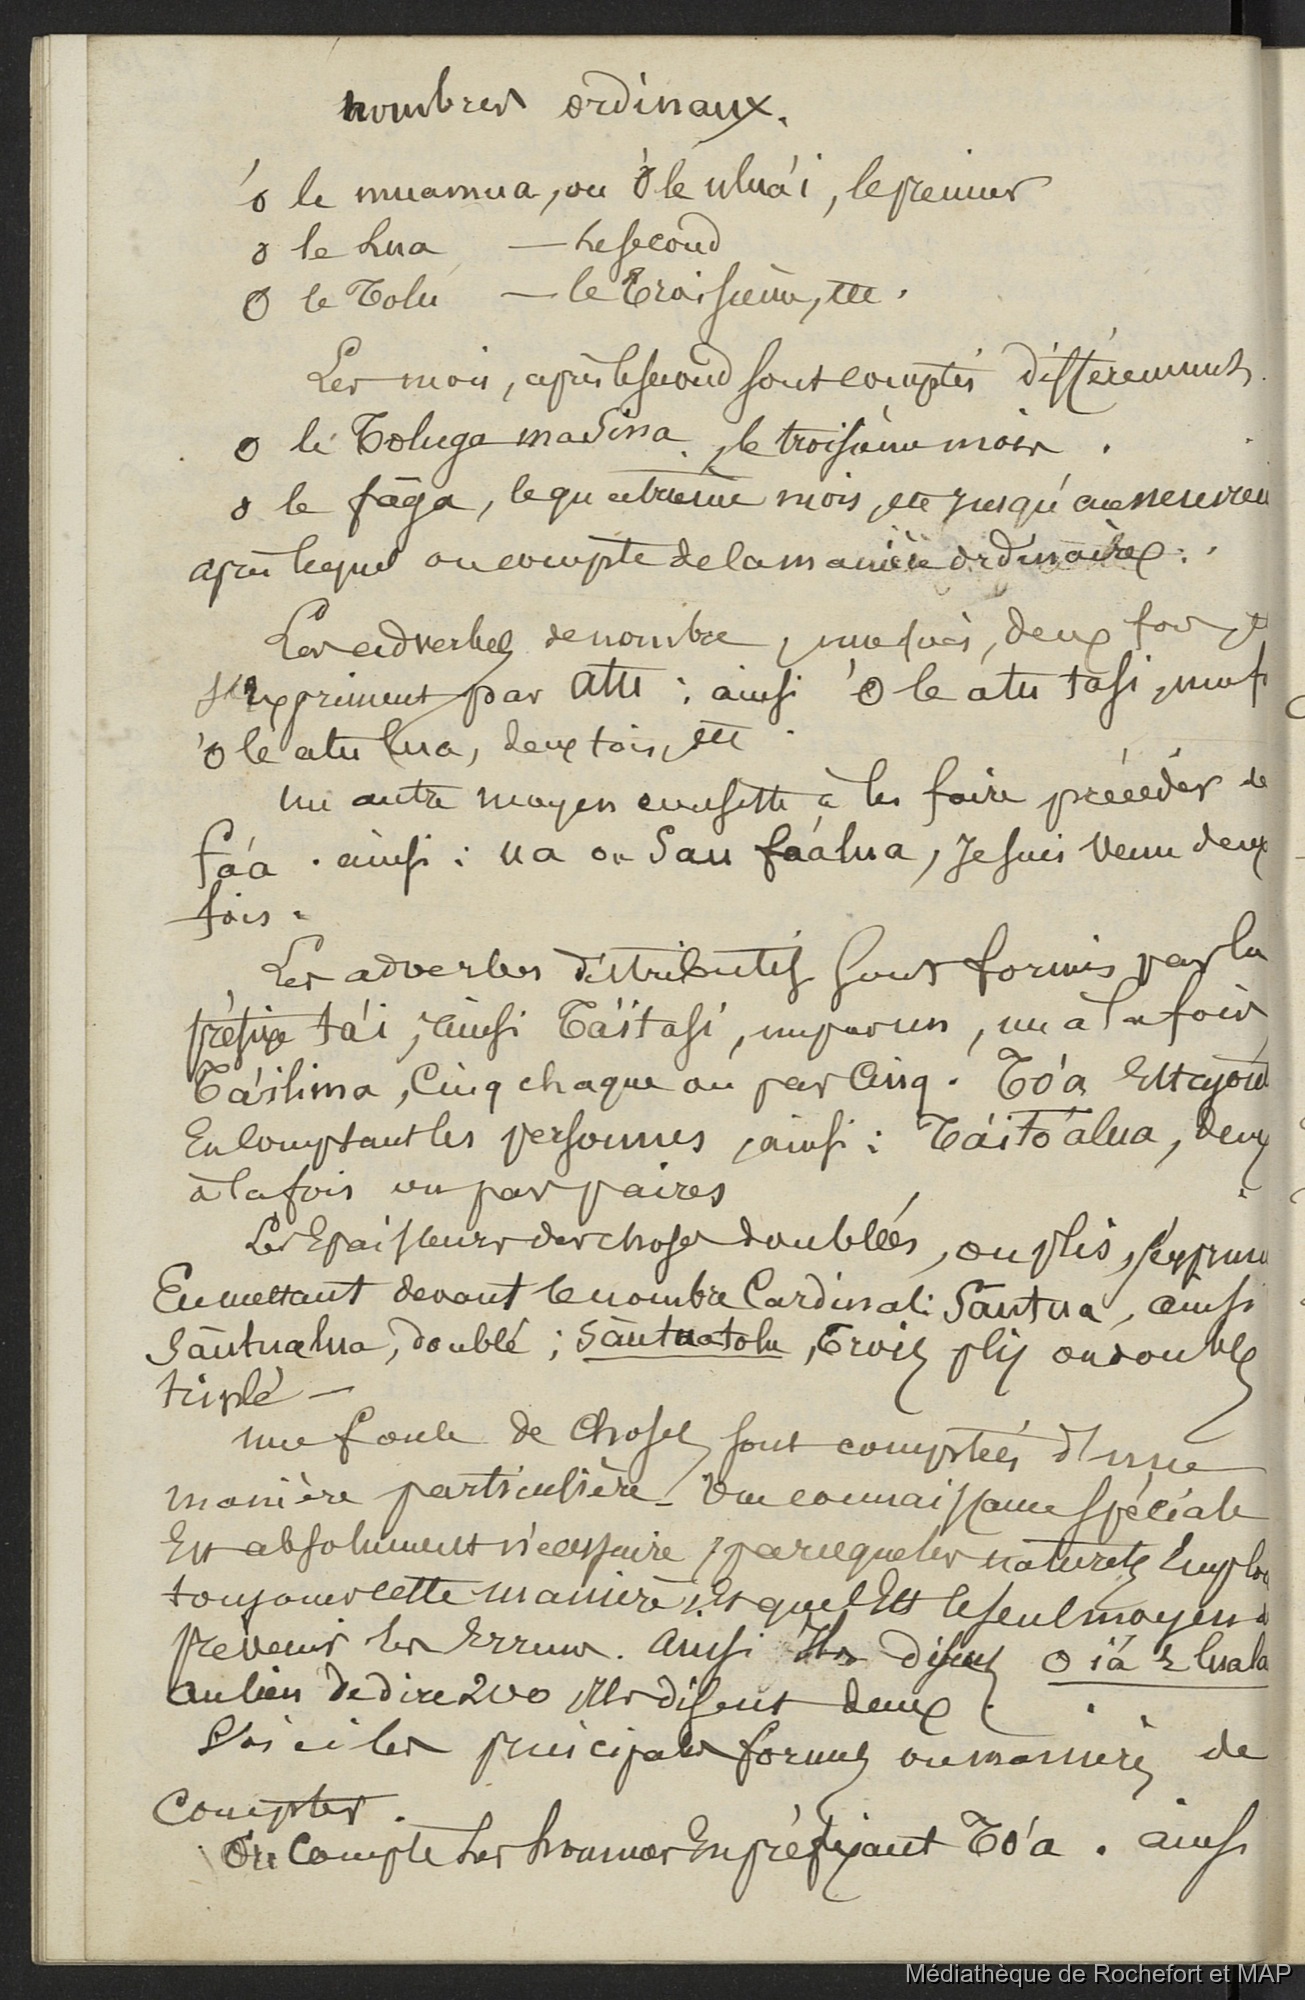 nombres ordinaux.
'o le muamua, ou 'O le ulua'i, le premier
o le Lua — Le second
O le Tolu — le troisième, etc.
Les mois, après le second sont comptés différemment.
o le Toluga masina, le troisième mois.
o le fāga, le quatrième mois, etc jusqu'au neuvièm
après lequel on compte de la manière ordinaire.
Les adverbes de nombre, une fois, deux fois, et
s'expriment par atu : ainsi 'O le atu tasi, une f
'O le atu lua, deux fois, etc
un autre moyen consiste à les faire précéder de
fa'a. ainsi : ua ou sau fa'alua, je suis venu deux
fois.
Les adverbes distributifs sont formés par le
préfixe ta'i, ainsi Ta'itasi, un par un, un à la fois,
Ta'ilima, Cinq chaque ou par Cinq. To'a Est ajout
En Comptant les personnes, ainsi : Ta'ito'alua, deux
à la fois ou par paires
Les Epaisseurs des choses doublées, ou plis, s'exprim
En mettant devant le nombre Cardinal : Sāutua, ainsi
Sāutualua, doublé ; Sāutuatolu, trois plis ou double
triplé —
une foule de Choses sont comptées d'une
manière particulière. Une connaissance spéciale
Est absolument nécessaire, parceque les naturels Emploi
toujours cette manière. Et que c'Est le seul moyen d
prévenir les Erreurs. Ainsi Ils disent o ia e lualau
au lieu de dire 200 Ils disent deux.
Voici les principales formes ou manières de
Compter.
On Compte Les hommes En préfixant To'a. ainsi
Médiathèque de Rochefort et MAP